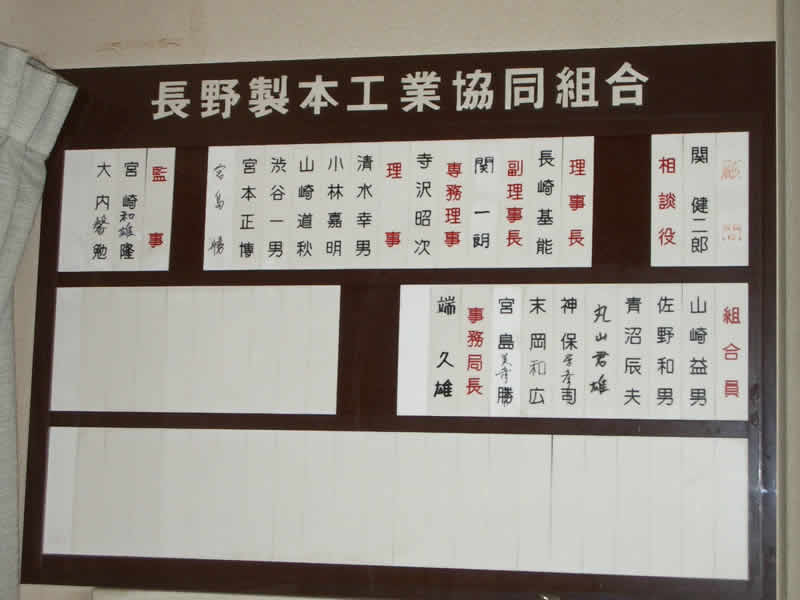 長野製本工業協同組合
顧問
関 健二郎
相談役
理事長
長崎基能
副理事長
関 一朗
専務理事
寺沢昭次
理事
清水幸男
小林嘉明
山崎道秋
渋谷一男
宮本正博
宮島 勝
監事
宮崎和雄隆
大内 勉
組合員
山崎益男
佐野和男
青沼辰夫
丸山君雄
神保 司
末岡和広
宮島 勝
事務局長
端 久雄